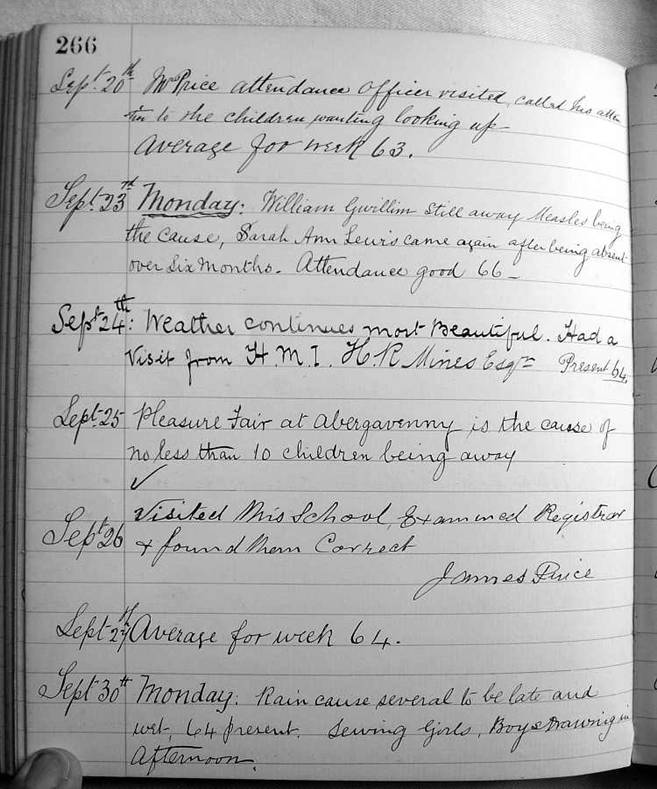 266
Sept. 20th Mr Price attendance Officer visited, called his atten
tion to the children wanting looking up
Average for week 63.
Sept. 23rd Monday: William Gwillim still away Measles being
the cause, Sarah Ann Lewis came again after being absent
over Six Months. Attendance good 66
Sept 24th: Weather continues most Beautiful. Had a
Visit from H.M.I. H. R Mines Esqre Present 64
Sept. 25 Pleasure Fair at Abergavenny is the cause of
no less than 10 children being away
✓
Visited this School, Examined Register
Sept 26 & found them Correct
James Price
Sept 27 Average for week 64.
Sept 30th Monday: Rain cause several to be late and
wet, 64 present. Sewing Girls, Boys Drawing in
Afternoon.